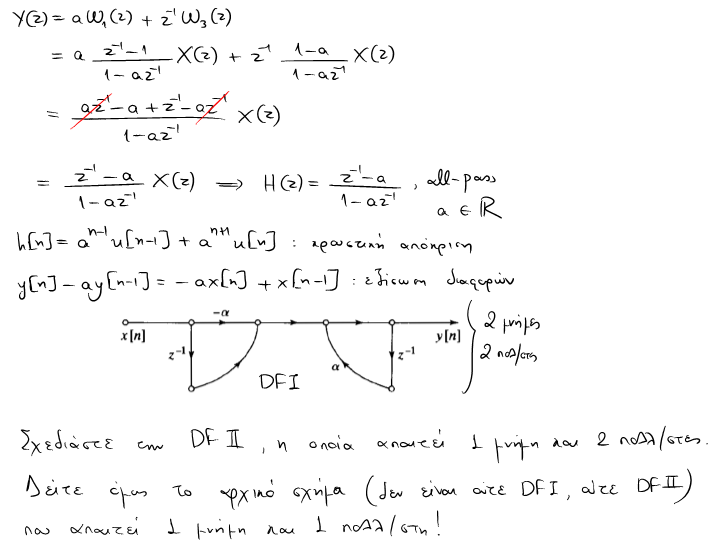 Y(z) = a W₁(z) + z⁻¹ W₃(z)
= a (z⁻¹ - 1)/(1 - az⁻¹) X(z) + z⁻¹ (1 - a)/(1 - az⁻¹) X(z)
= (az⁻¹ - a + z⁻¹ - az⁻¹)/(1 - az⁻¹) X(z)
= (z⁻¹ - a)/(1 - az⁻¹) X(z) ⟹ H(z) = (z⁻¹ - a)/(1 - az⁻¹) , all-pass
a ∈ ℝ
h[n] = aⁿ⁻¹ u[n-1] + aⁿ⁺¹ u[n] : κρουστική απόκριση
y[n] - ay[n-1] = -ax[n] + x[n-1] : εξίσωση διαφορών
-α
x[n] y[n]
z⁻¹ α z⁻¹
DFI
2 μνήμες
2 πολ/στές
Σχεδιάστε την DF II , η οποία απαιτεί 1 μνήμη και 2 πολλ/στές.
Δείτε όμως το αρχικό σχήμα (δεν είναι ούτε DFI, ούτε DFII)
που απαιτεί 1 μνήμη και 1 πολλ/στή!